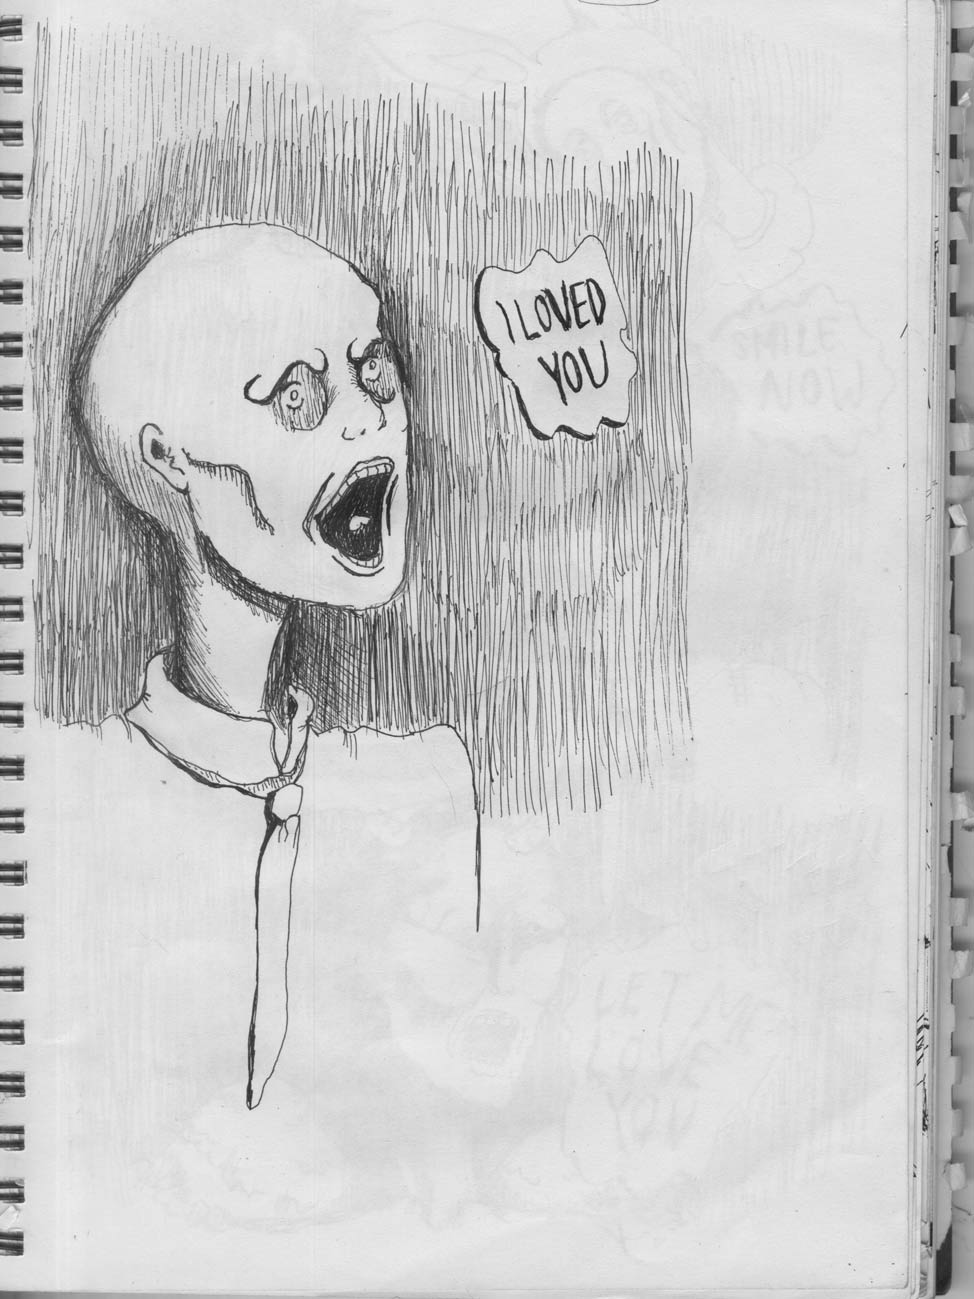 I LOVED
YOU
SMILE
NOW
LET ME
LOVE
YOU